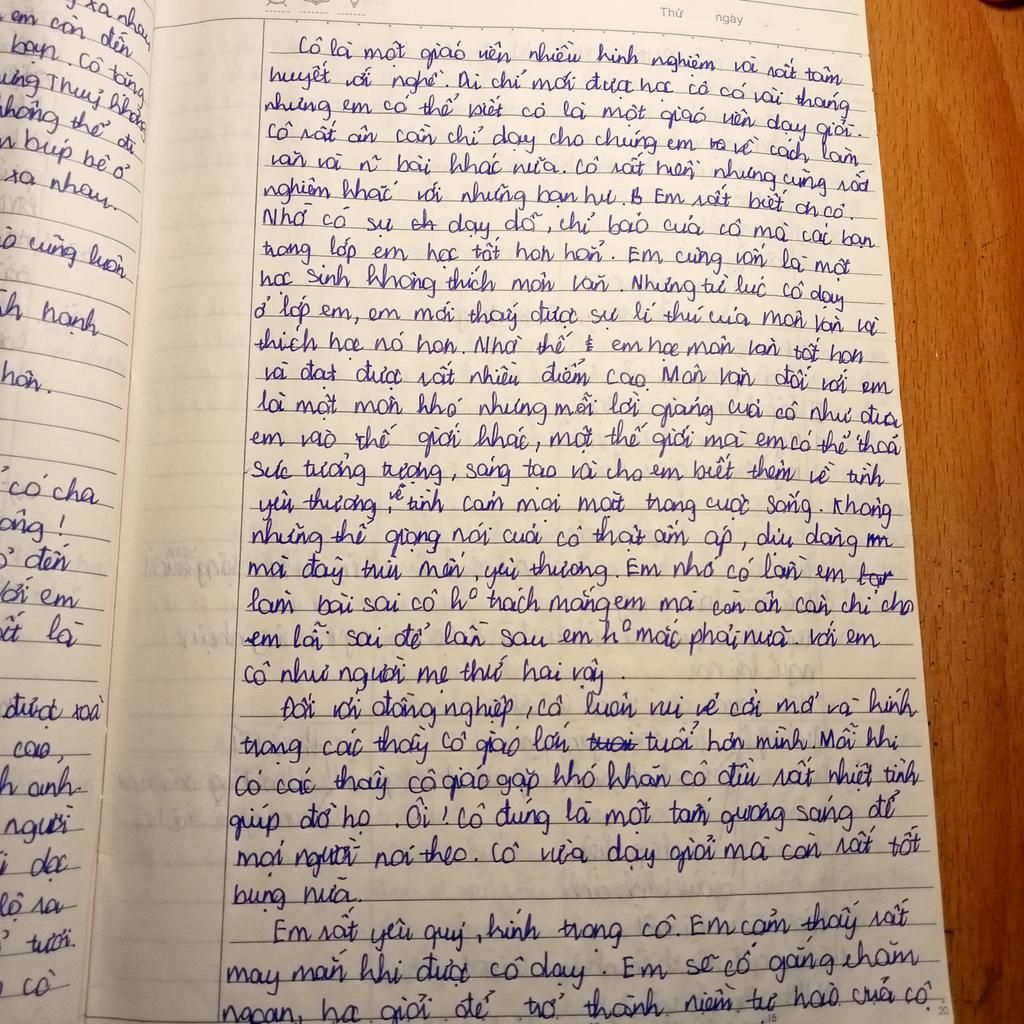 Thứ ngày
xa nhau
em còn đến
bạn. Cô tặng
không thể đi
búp bê ở
xa nhau.
cũng luôn
hạnh
hơn.
có cha
ông!
đến
em
là
được xoà
cao,
anh
người
dọc
lộ ra
tươi.
cô
Cô là một giáo viên nhiều kinh nghiệm và rất tâm
huyết với nghề. Dù chỉ mới được học cô có vài tháng
nhưng em có thể biết cô là một giáo viên dạy giỏi.
Cô rất ân cần chỉ dạy cho chúng em về cách làm
văn và bài khác nữa. Cô rất hiền nhưng cũng rất
nghiêm khắc với những bạn hư. Em rất biết ơn cô.
Nhờ có sự dạy dỗ, chỉ bảo của cô mà các bạn
trong lớp em học tốt hơn hẳn. Em cũng vốn là một
học sinh không thích môn văn. Nhưng từ lúc cô dạy
ở lớp em, em mới thấy được sự lí thú của môn văn và
thích học nó hơn. Nhờ thế em học môn văn tốt hơn
và đạt được rất nhiều điểm cao. Môn văn đối với em
là một môn khó nhưng mỗi lời giảng của cô như đưa
em vào thế giới khác, một thế giới mà em có thể thoả
sức tưởng tượng, sáng tạo và cho em biết thêm về tình
yêu thương, về tình cảm mọi mặt trong cuộc sống. Không
những thế giọng nói của cô thật ấm áp, dịu dàng
mà đầy trìu mến, yêu thương. Em nhớ có lần em
làm bài sai cô ho trách mắng em mà còn ân cần chỉ cho
em lỗi sai để lần sau em ho mắc phải nữa. Với em
cô như người mẹ thứ hai vậy.
Đối với đồng nghiệp, cô luôn vui vẻ cởi mở và kính
trọng các thầy cô giáo lớn tuổi hơn mình. Mỗi khi
có các thầy cô giáo gặp khó khăn cô đều rất nhiệt tình
giúp đỡ họ. Ôi! Cô đúng là một tấm gương sáng để
mọi người noi theo. Cô vừa dạy giỏi mà còn rất tốt
bụng nữa.
Em rất yêu quý, kính trọng cô. Em cảm thấy rất
may mắn khi được cô dạy. Em sẽ cố gắng chăm
ngoan, học giỏi để trở thành niềm tự hào của cô.
15
20